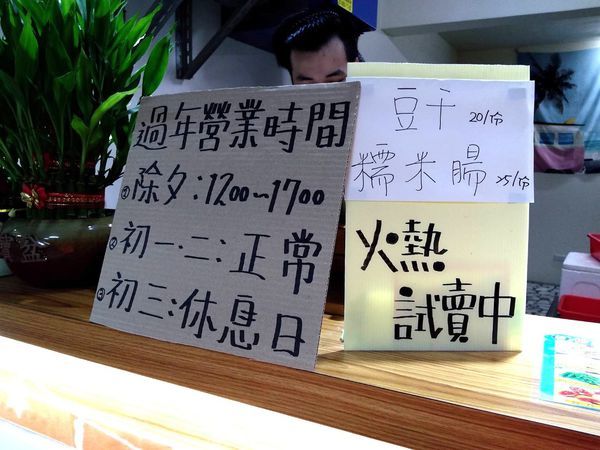 過年營業時間
①除夕:1200~1700
②初一.二:正常
③初三:休息日
豆干 20/份
糯米腸 25/份
火熱
試賣中